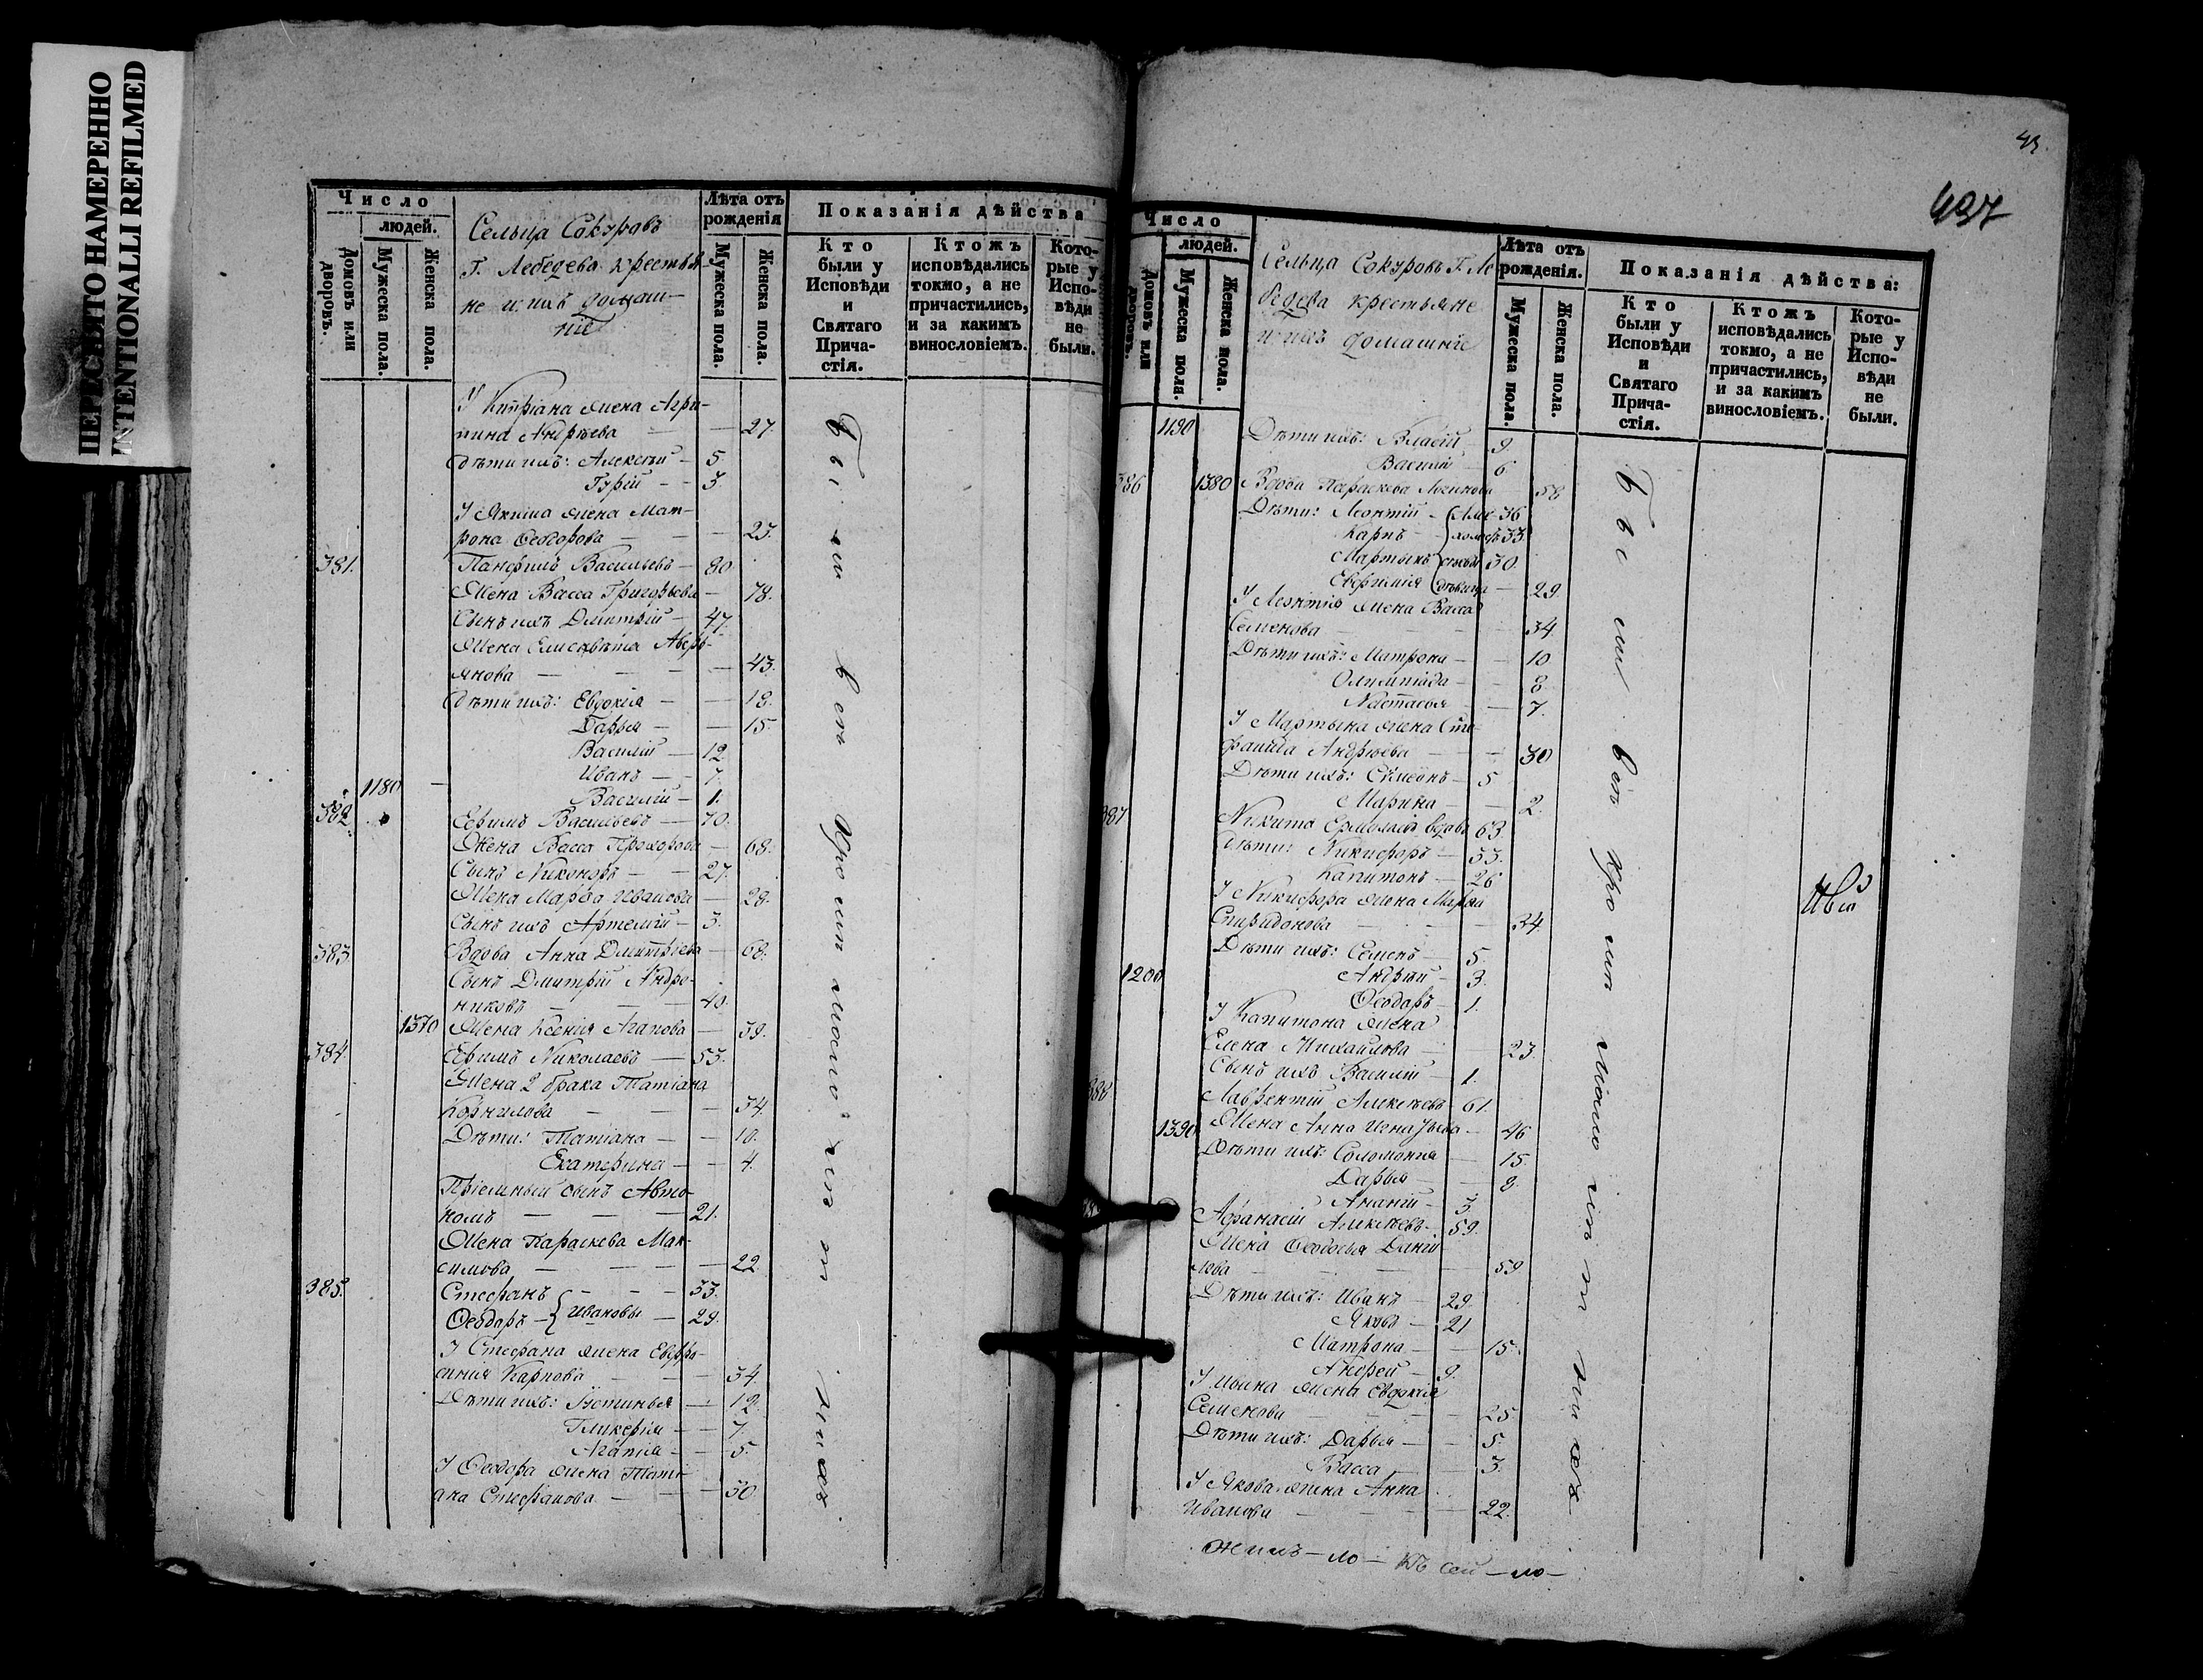 ПЕРЕСНЯТО НАМЕРЕННО
INTENTIONALLI REFILMED
Число
людей.
Домовъ или дворовъ.
Мужеска пола.
Женска пола.
Сельца Сокуровъ
Г. Лебедева крестья-
не и ихъ домаш-
ніе
Лѣта отъ рожденія
Мужеска пола.
Женска пола.
Показанія дѣйства
Кто были у Исповѣди и Святаго Прича-стія.
Ктожъ исповѣдались токмо, а не причастились, и за какимъ винословіемъ.
Кото-рые у Испо-вѣди не были.
У Кипріана жена Агри-
пина Андрѣева — — 27.
Дѣти ихъ: Алексѣй — 5.
Гурій — — 3.
У Якима жена Мат-
рона Ѳеодорова — — 23.
381. Панфилъ Васильевъ — 80.
Жена Васса Григорьева — 78.
Сынъ ихъ Дмитрій — 47.
Жена Елисавета Аверь-
янова — — — 43.
Дѣти ихъ: Евдокія — — 18.
Дарья — — 15.
Василій — 12.
Иванъ — — 7.
1180 Василій — 1.
382. Ефимъ Васильевъ — 70.
Жена Васса Прохорова — 68.
Сынъ Никоноръ — — 27.
Жена Марѳа Иванова — 28.
Сынъ ихъ Артемій — 3.
383 Вдова Анна Дмитріева — 68.
Сынъ Дмитрій Андро-
никовъ — — — 40.
1370 Жена Ксенія Агапова — 39.
384 Ефимъ Николаевъ — 53.
Жена 2 брака Татіана
Корнилова — — — 34.
Дѣти: Татіана — — 10.
Екатерина — — 4.
Пріемный сынъ Авто-
номъ — — — 21.
Жена Параскева Мак-
симова — — — — 22
385. Стефанъ — — — 33.
Ѳеодоръ — Ивановы — 29.
У Стефана жена Евфро-
синія Карпова — — — 34.
Дѣти ихъ: Устинья — — 12.
Гликерія — — 7.
Агапія — — 5.
У Ѳеодора жена Тати-
ана Стефанова — — — 30.
43.
437
Число
людей.
Домовъ или дворовъ.
Мужеска пола.
Женска пола.
Сельца Сокуровъ Г. Ле
бедева крестьяне
и ихъ домашніе
Лѣта отъ рожденія.
Мужеска пола.
Женска пола.
Показанія дѣйства:
Кто были у Исповѣди и Святаго Прича-стія.
Ктожъ исповѣдались токмо, а не причастились, и за какимъ винословіемъ.
Кото-рые у Испо-вѣди не были.
1190 Дѣти ихъ: Власій — 9.
Василій — 6
386 1380 Вдова Параскева Логинова 58
Дѣти: Леонтій — 36
Карпъ — 33.
Мартынъ 30.
Евфимія дѣвица — 29.
У Леонтія жена Васса
Семенова — — — 34.
Дѣти ихъ: Матрона — — 10
Олимпіада — — 8
Настасья — 7.
У Мартына жена Сте-
фанида Андрѣева — — 30
Дѣти ихъ: Симеонъ — 5
Марина — — 2.
387 Никита вдовъ 63
Дѣти: Никифоръ — 33.
Капитонъ — 26
У Никифора жена Марѳа
Спиридонова — — — 34.
Дѣти ихъ: Семенъ — 5.
1200 Андрѣй — 3.
Ѳеодоръ — 1.
У Капитона жена
Елена Михайлова — 23
Сынъ ихъ Василій — 1.
388 Лаврентій Алексѣевъ — 61.
1390 Жена Анна Игнатьева — 46
Дѣти ихъ: Соломонія — 15.
Дарья — — 8.
Ананій — 3
Аѳанасій Алексѣевъ — 59.
Жена Ѳеодосья Даніи-
лова — — — 59
Дѣти ихъ: Иванъ — 29.
Яковъ — 21
Матрона — — 15.
Андрей — 9.
У Ивана жена Евдокія
Семенова — — — 25.
Дѣти ихъ: Дарья — — 5.
Васса — 3.
У Якова жена Анна
Иванова — — — 22.